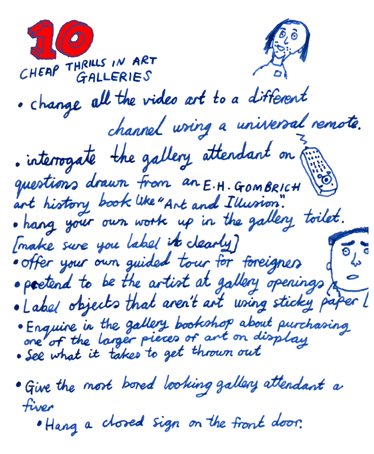 10
CHEAP THRILLS IN ART
GALLERIES
• change all the video art to a different
channel using a universal remote.
• interrogate the gallery attendant on
questions drawn from an E.H. GOMBRICH
art history book like "Art and Illusion".
• hang your own work up in the gallery toilet.
[make sure you label it clearly]
• Offer your own guided tour for foreigners
• pretend to be the artist at gallery openings
• Label objects that aren't art using sticky paper
• Enquire in the gallery bookshop about purchasing
one of the larger pieces of art on display
• See what it takes to get thrown out
• Give the most bored looking gallery attendant a
fiver
• Hang a closed sign on the front door.